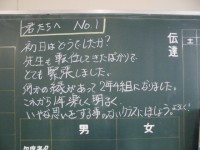 君たちへ No.1
初日はどうでしたか?
先生も転任してきたばかりで
とても緊張しました。
何かの縁があって2年4組になりました。
これから1年楽しく明るく
いやな思いをする事のないクラスにしましょう。
よろしく!
伝達
男 女